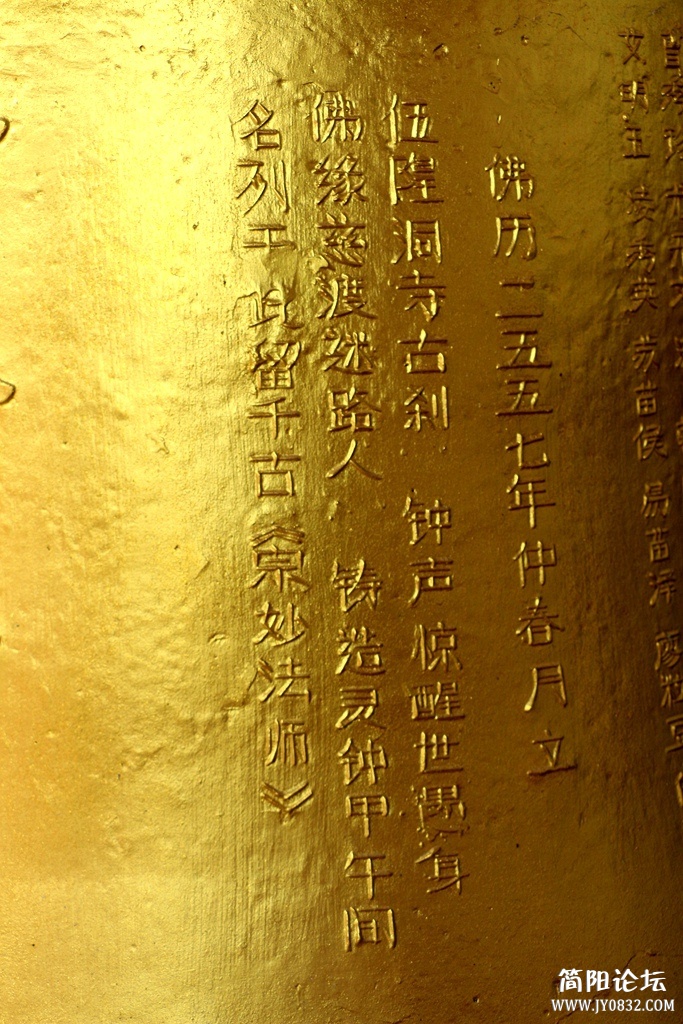 文明玉 秀英 苏苗侯 易苗泽 廖
佛历二五五七年仲春月立
伍隍洞寺古刹 钟声惊醒世愚身
佛缘慈渡迷路人 铸造灵钟甲午间
名列于此留千古《妙法师》
简阳论坛
WWW.JY0832.COM